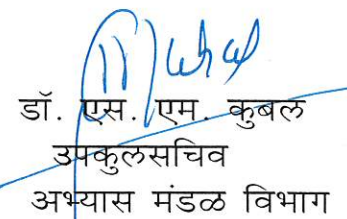 डॉ. एस. एम. कुबल
उपकुलसचिव
अभ्यास मंडळ विभाग